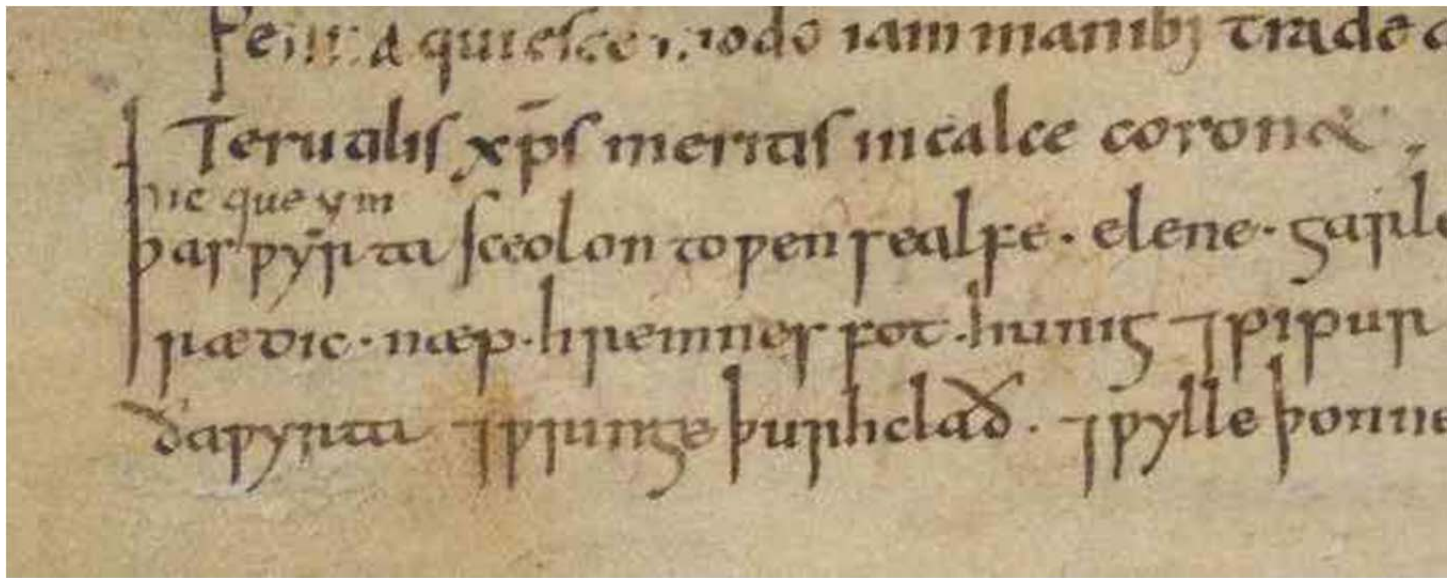 quiesce modo iam manibꝫ trade
Terualis xp̄s meritis incalce coron&
hic que ym
Þas ƿyrta sceolon to ƿen sealfe · elene · garle
rædic · næp · hremnes fot · hunig ⁊ pipur
ða ƿyrta ⁊ ƿringe þurh clað · ⁊ ƿylle þonne